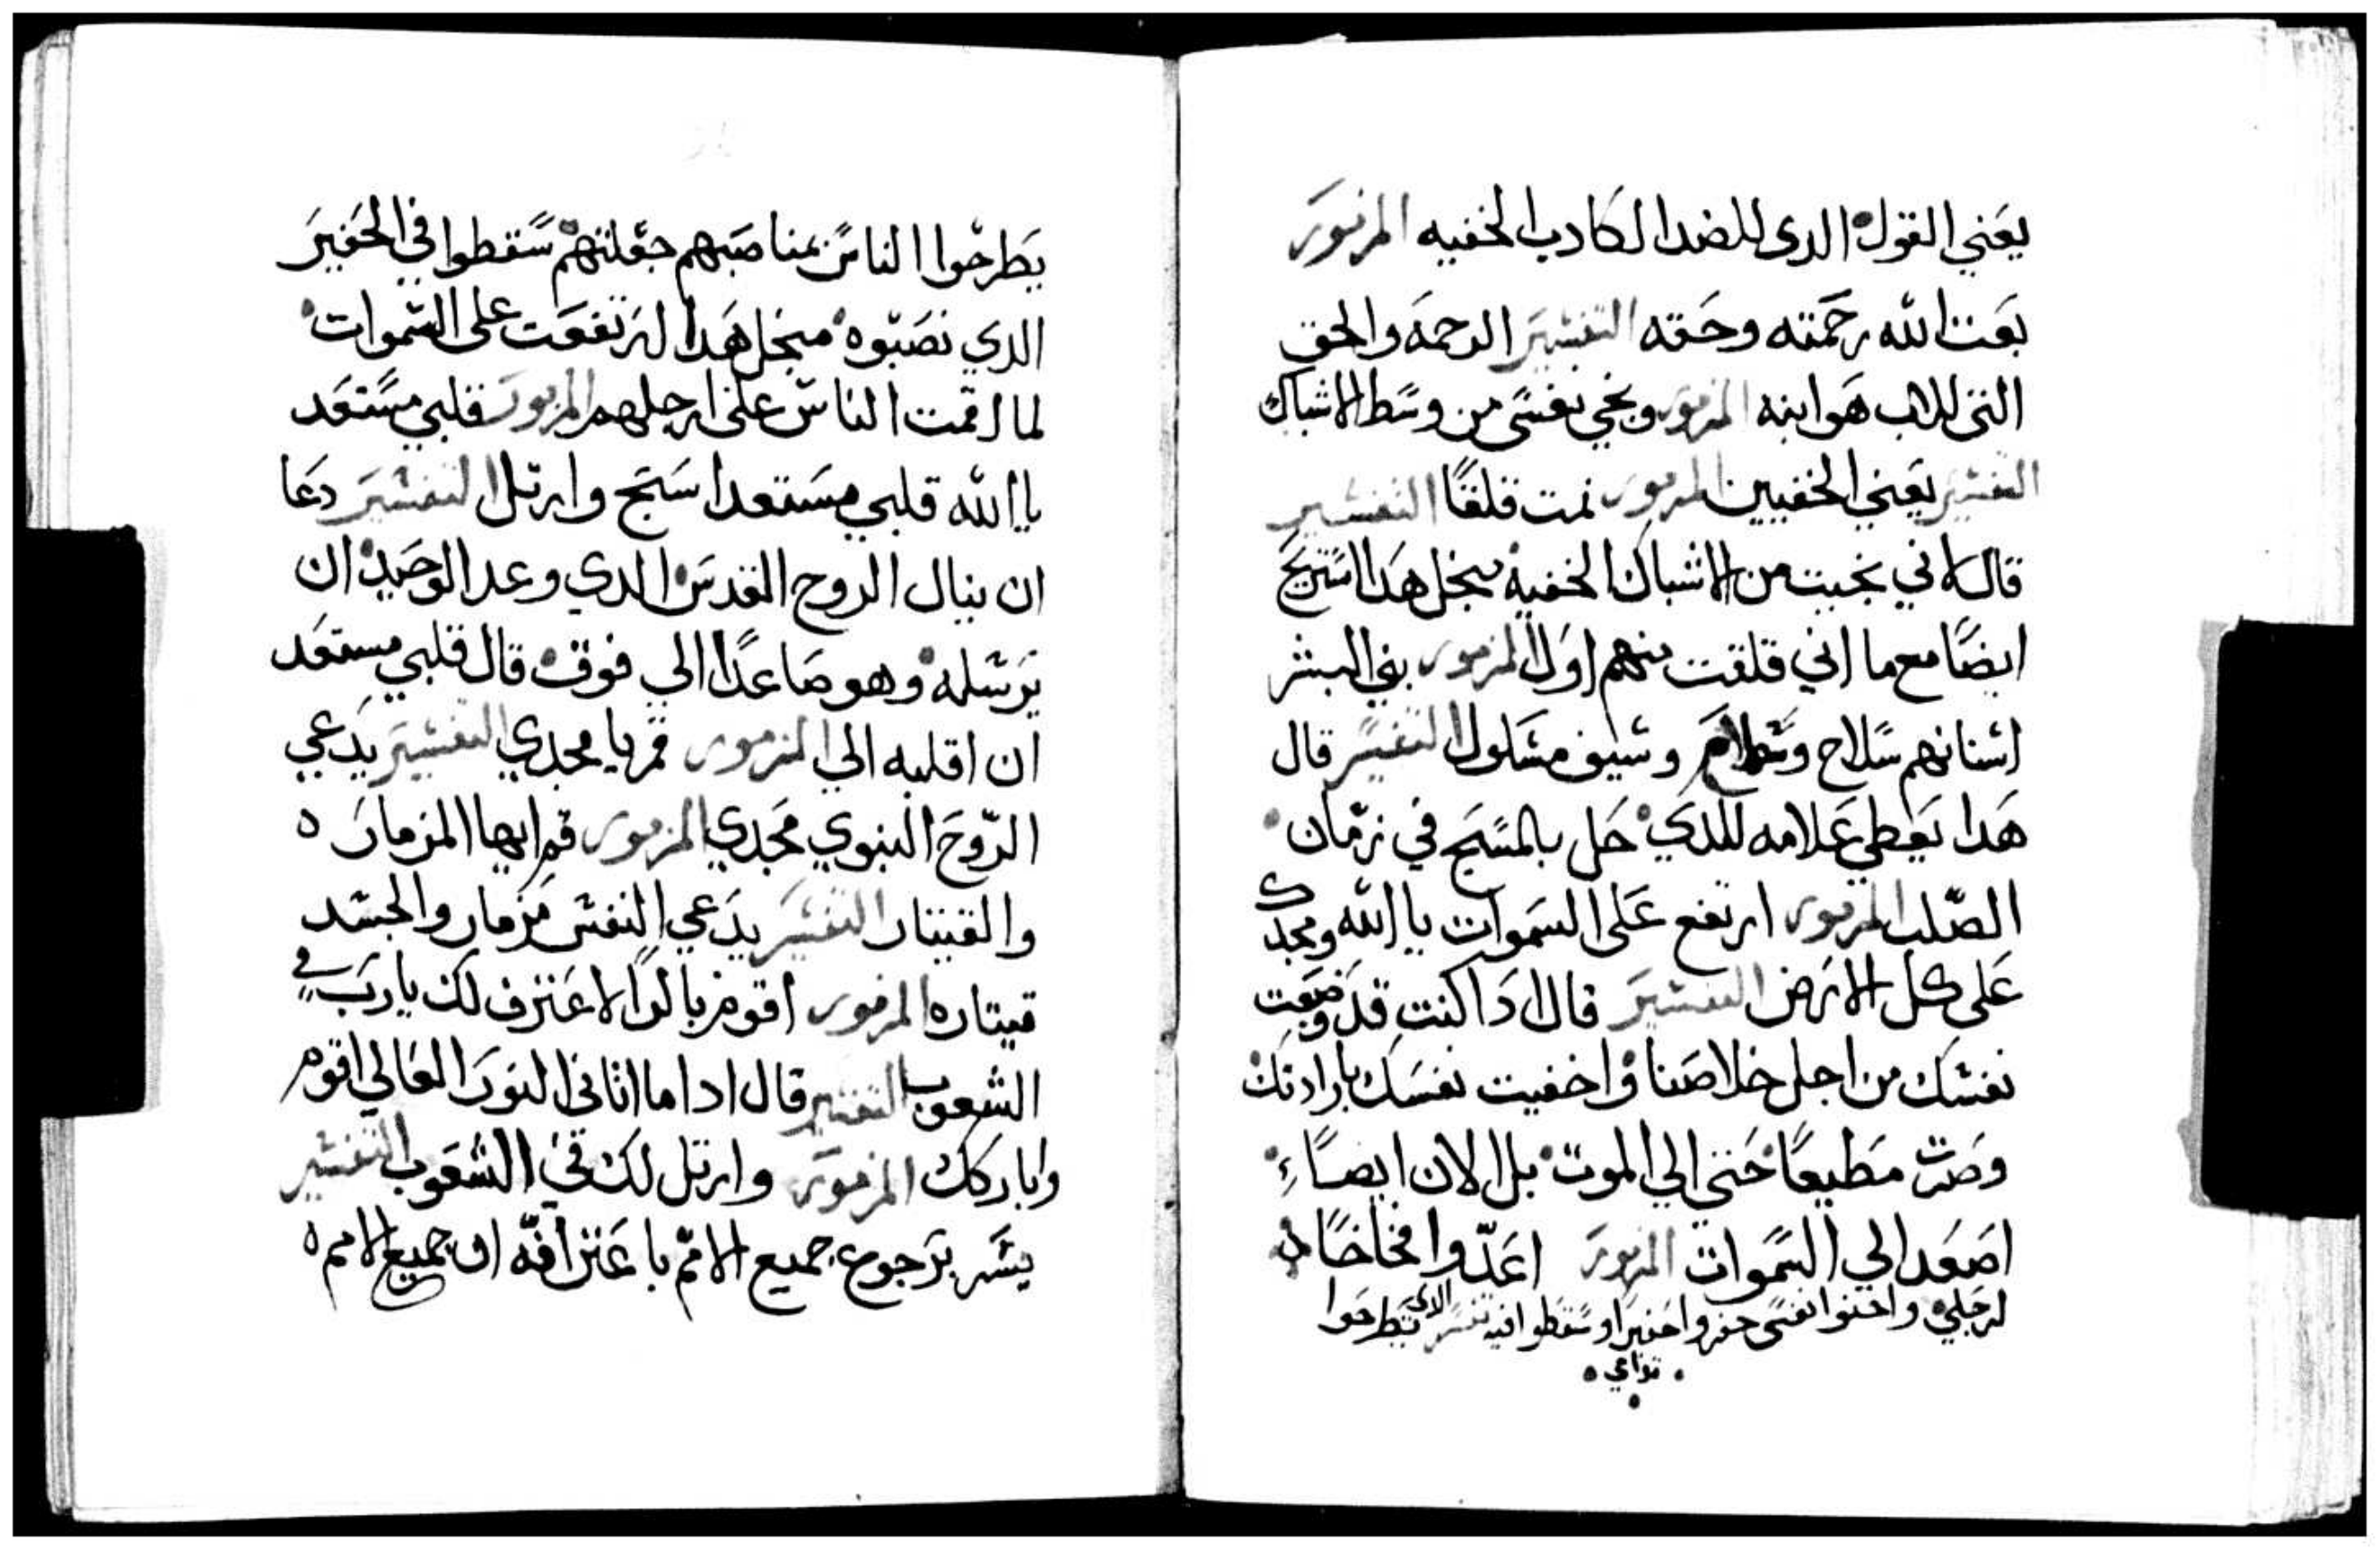 يعني القول الدي للضد الكادب الخفيه المزمور
بعت الله رحمته وحقه التفسير الرحمة والحق
التي للاب هو ابنه المزمور ونجي نفسي من وسط الاشبال
التفسير يعني الخفيين المزمور نمت قلقًا التفسير
قال اني نجيت من الاشبال الخفية منجل هدا استريح
ايضًا مع ما اني قلقت منهم اولا المزمور بني البشر
اسنانهم سلاح وسهام وسيف مسلول التفسير قال
هدا يعطي علامه للدي حل بالمسيح في زمان
الصلب المزمور ارتفع على السموات يا الله ومجدك
على كل الارض التفسير قال ادا كنت قد وضعت
نفسك من اجل خلاصنا واخفيت نفسك بارادتك
وصرت مطيعًا حتى الي الموت بل الان ايضًا
اصعد الي السموات المزمور اعدّوا فخاخًا
لرجلي واحنوا نفسي حفروا حفيرا وسقطوا فيه تفسير الدي يطرحوا
يطرحوا الناس بمناصبهم جملتهم سقطوا في الحفير
الدي نصبوه منجل هدا ارتفعت على السموات
لما اقمت الناس على ارجلهم المزمور قلبي مستعد
يا الله قلبي مستعدا سبح وارتل التفسير دعا
ان ينال الروح القدس الدي وعد الوحيد ان
يرسله وهو صاعدًا الي فوق قال قلبي مستعد
ان اقلبه الي المزمور قم يا مجدي التفسير يدعي
الرّوح النبوي مجدي المزمور قم ايها المزمار ه
والقيتار التفسير يدعي النفس مزمار والجسد
قيتاره المزمور اقوم باكرًا لاعترف لك يارب في
الشعوب التفسير قال ادا ما اتاني النور العالي اقوم
واباركك المزمور وارتل لك في الشعوب التفسير
يشر برجوع جميع الامم باعترافه ان جميع الامم ه